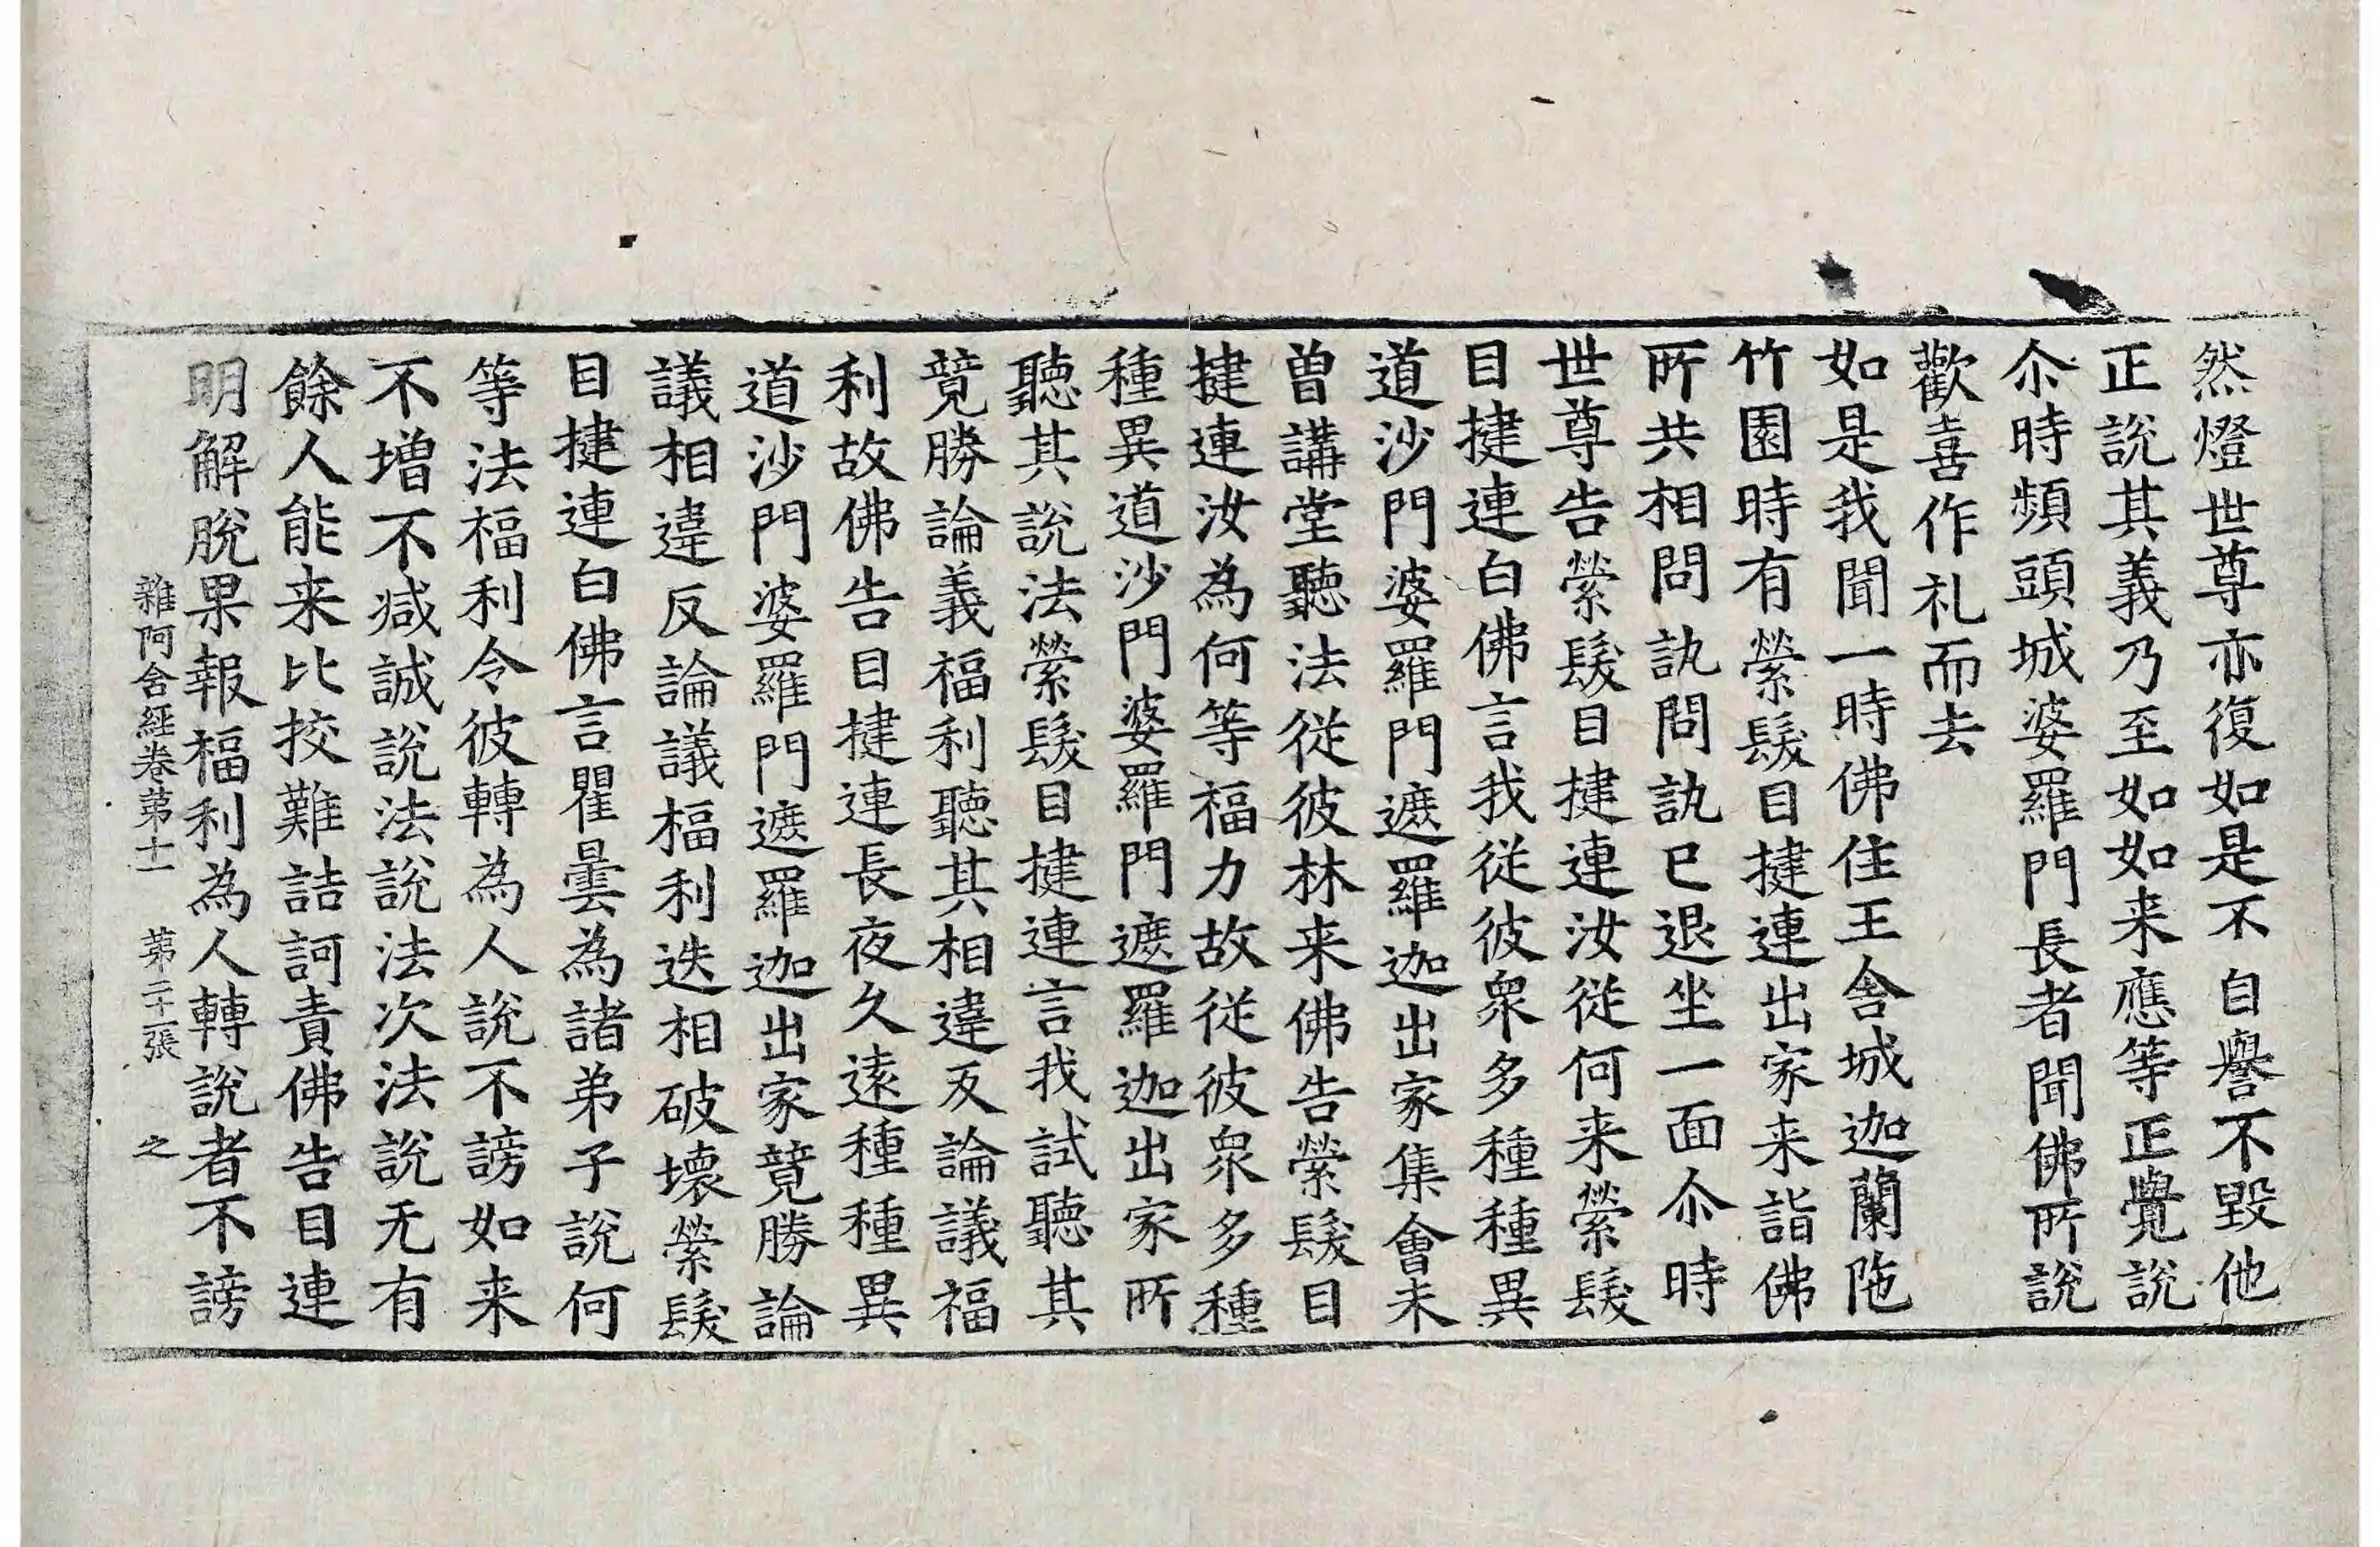 然燈世尊亦復如是不自譽不毀他
正說其義乃至如如来應等正覺說
尒時頻頭城婆羅門長者聞佛所說
歡喜作礼而去
如是我聞一時佛住王舎城迦蘭陁
竹園時有縈髮目揵連出家来詣佛
所共相問訊問訊已退坐一面尒時
世尊告縈髮目揵連汝從何来縈髮
目揵連白佛言我從彼衆多種種異
道沙門婆羅門遮羅迦出家集會未
曽講堂聽法從彼林来佛告縈髮目
揵連汝為何等福力故從彼衆多種
種異道沙門婆羅門遮羅迦出家所
聽其說法縈髮目揵連言我試聽其
競勝論義福利聽其相違反論議福
利故佛告目揵連長夜久遠種種異
道沙門婆羅門遮羅迦出家競勝論
議相違反論議福利迭相破壞縈髮
目揵連白佛言瞿曇為諸弟子說何
等法福利令彼轉為人說不謗如来
不增不減誠說法說法次法說无有
餘人能来比挍難詰訶責佛告目連
明解脫果報福利為人轉說者不謗
雜阿含經卷第十一 第二十張 之